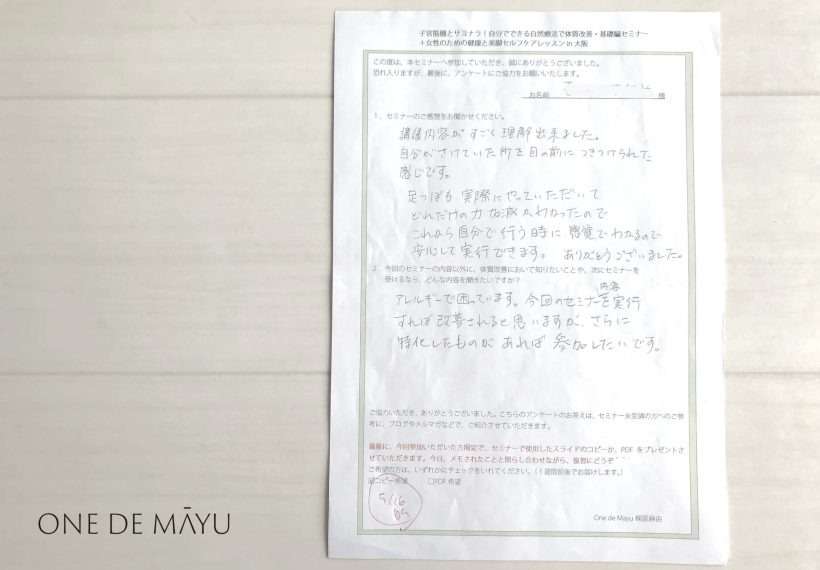 子宮筋腫とサヨナラ！自分でできる自然療法で体質改善・基礎編セミナー
+女性のための健康と美脚セルフケアレッスン in 大阪
この度は、本セミナーへ参加していただき、誠にありがとうございました。
恐れ入りますが、最後に、アンケートにご協力をお願いいたします。
お名前 様
1、セミナーのご感想をお聞かせください。
講座内容がすごく理解出来ました。
自分がさけていた所を目の前につきつけられた
感じです。
足つぼも実際にやっていただいて
どれだけの力加減かわかったので
これから自分で行う時に感覚でわかるので
安心して実行できます。ありがとうございました。
2、今回のセミナーの内容以外に、体質改善において知りたいことや、次にセミナーを
受けるなら、どんな内容を聞きたいですか？
アレルギーで困っています。今回のセミナー内容を実行
すれば改善されると思いますが、さらに
特化したものがあれば参加したいです。
ご協力いただき、ありがとうございました。こちらのアンケートのお答えは、セミナー未受講の方へのご参
考に、ブログやメルマガなどで、ご紹介させていただきます。
最後に、今回参加いただいた方限定で、セミナーで使用したスライドのコピーか、PDF をプレゼントさ
せていただきます。今日、メモされたことと照らし合わせながら、復習にどうぞ
ご希望の方は、いずれかにチェックをいれてください。（1週間前後でお届けします。）
☑コピー希望 □PDF 希望
5/16
One de Mayu
ONE DE MĀYU